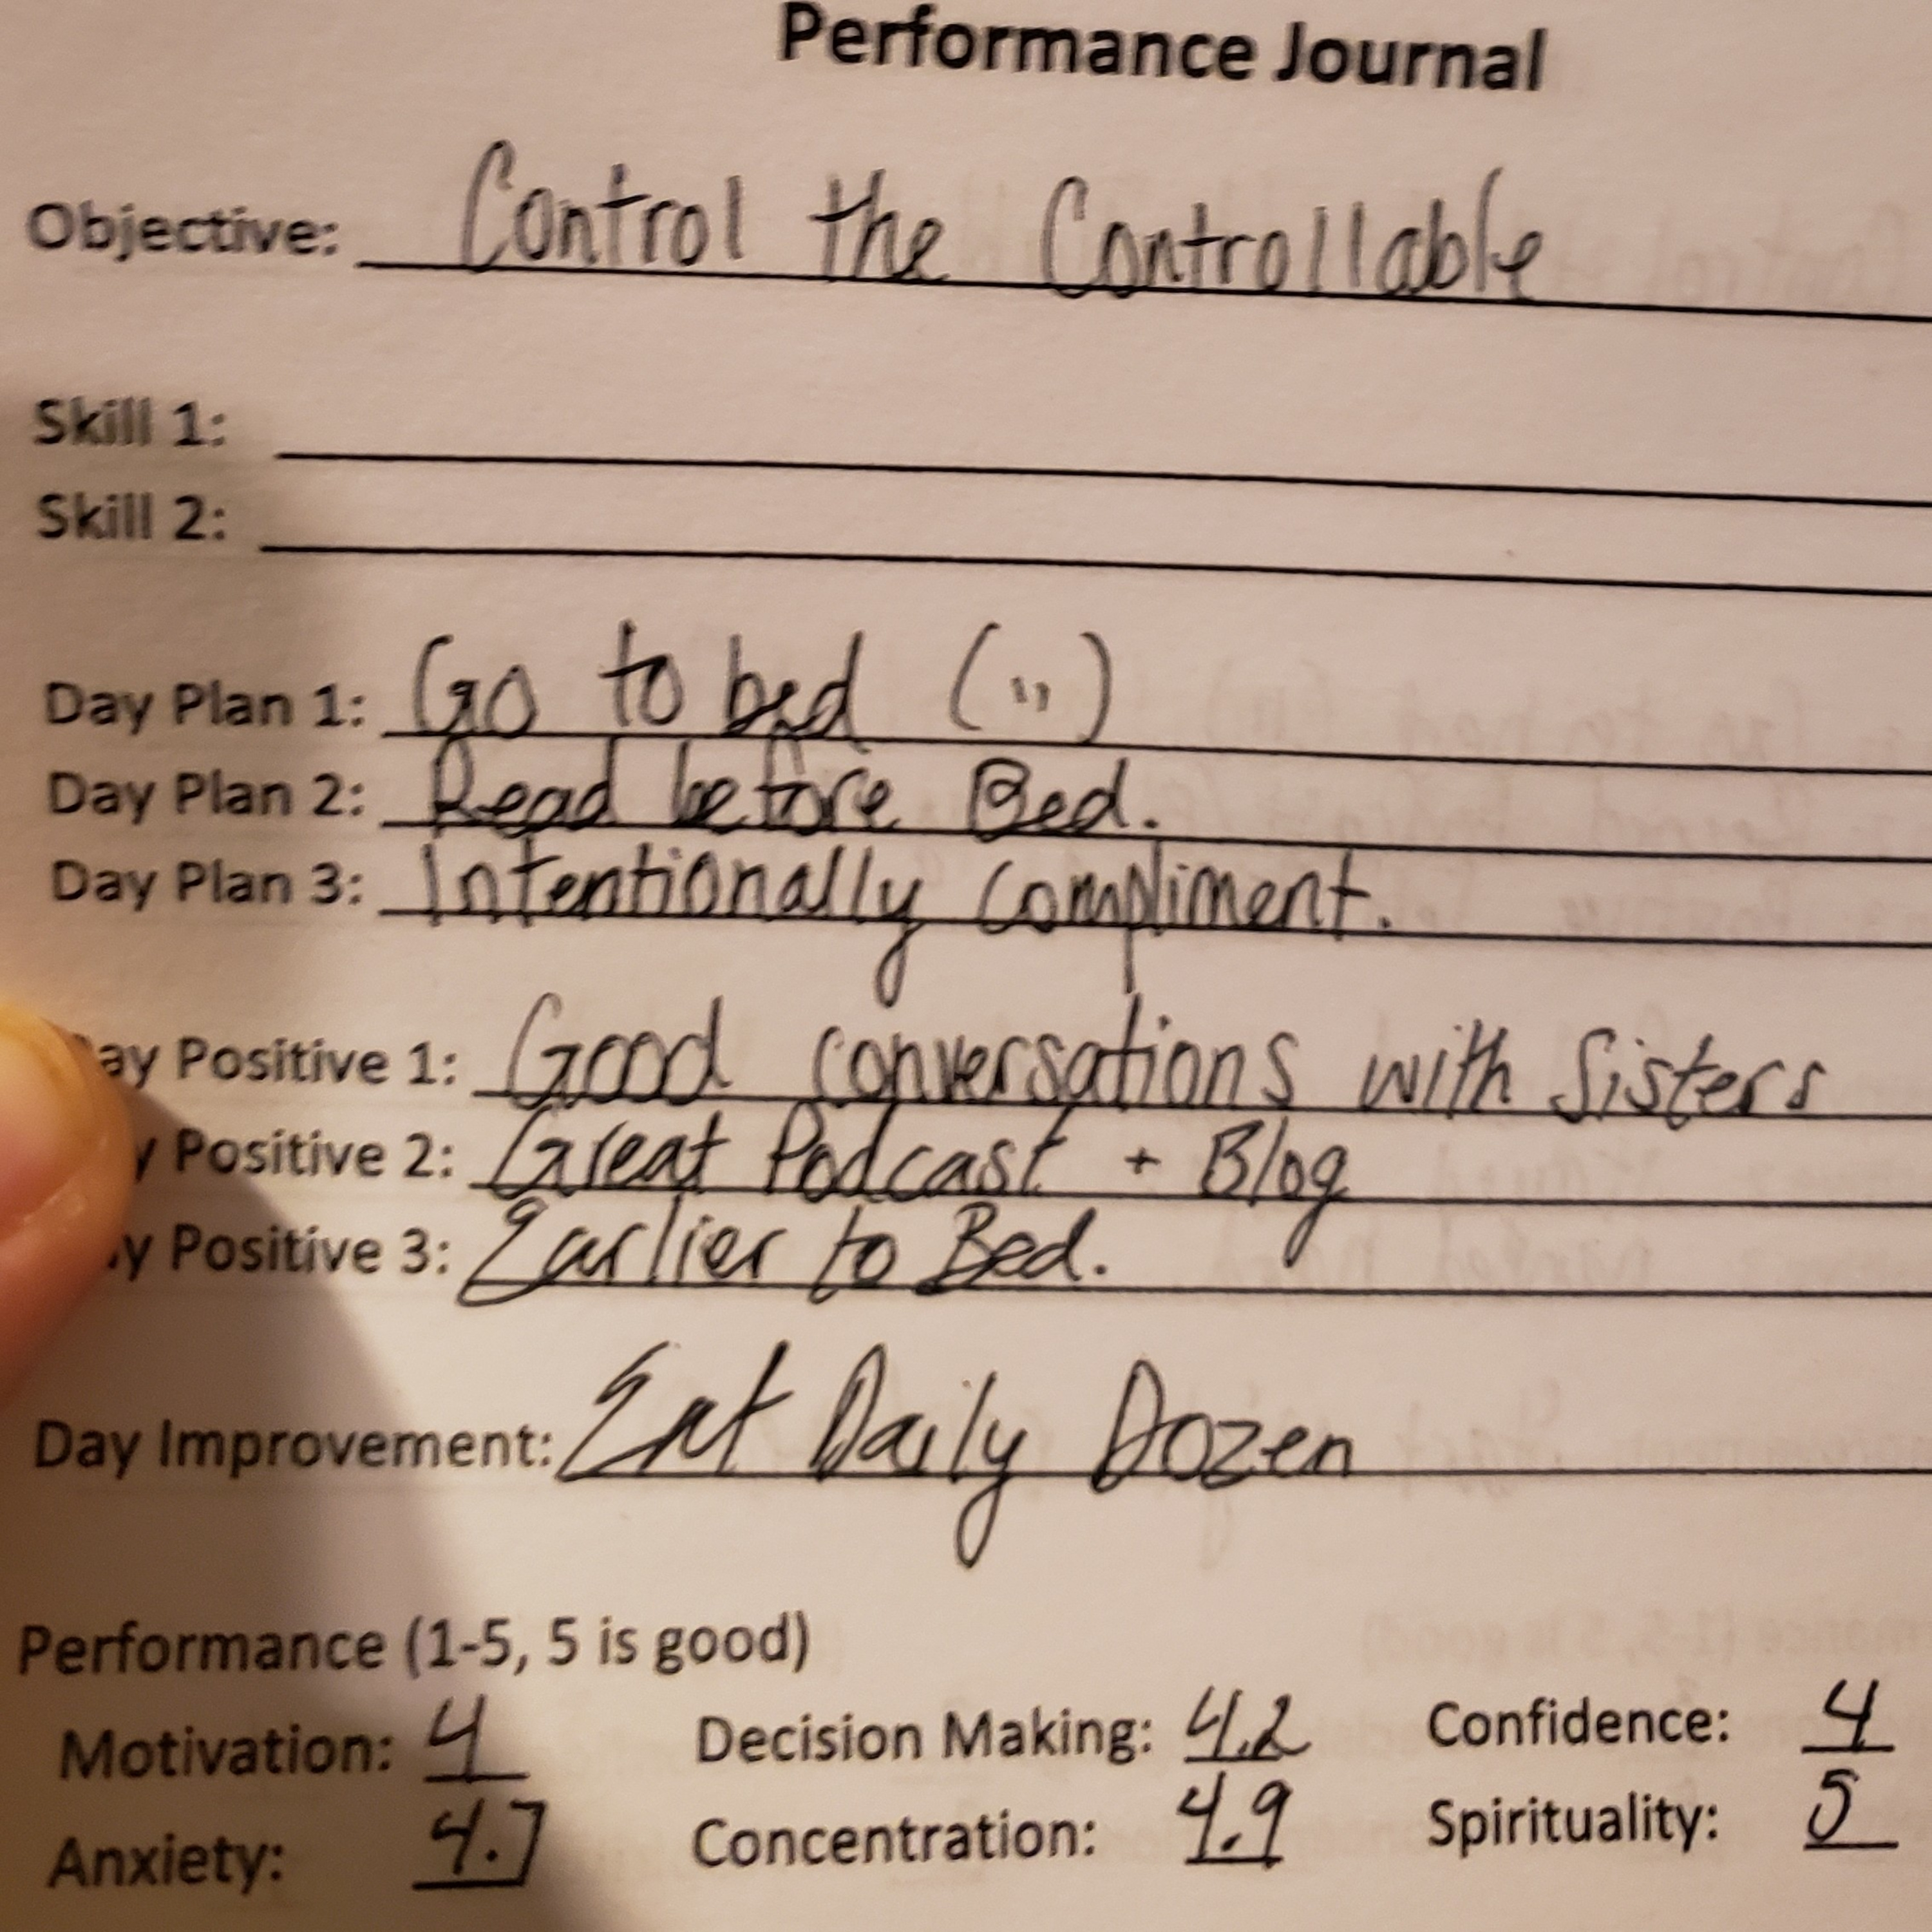 Performance Journal
Objective: Control the Controllable
Skill 1:
Skill 2:
Day Plan 1: Go to bed (")
Day Plan 2: Read before Bed.
Day Plan 3: Intentionally Compliment.
ay Positive 1: Good conversations with Sisters
y Positive 2: Great Podcast + Blog
y Positive 3: Earlier to Bed.
Day Improvement: Eat Daily Dozen
Performance (1-5, 5 is good)
Motivation: 4 Decision Making: 4.2 Confidence: 4
Anxiety: 4.7 Concentration: 4.9 Spirituality: 5